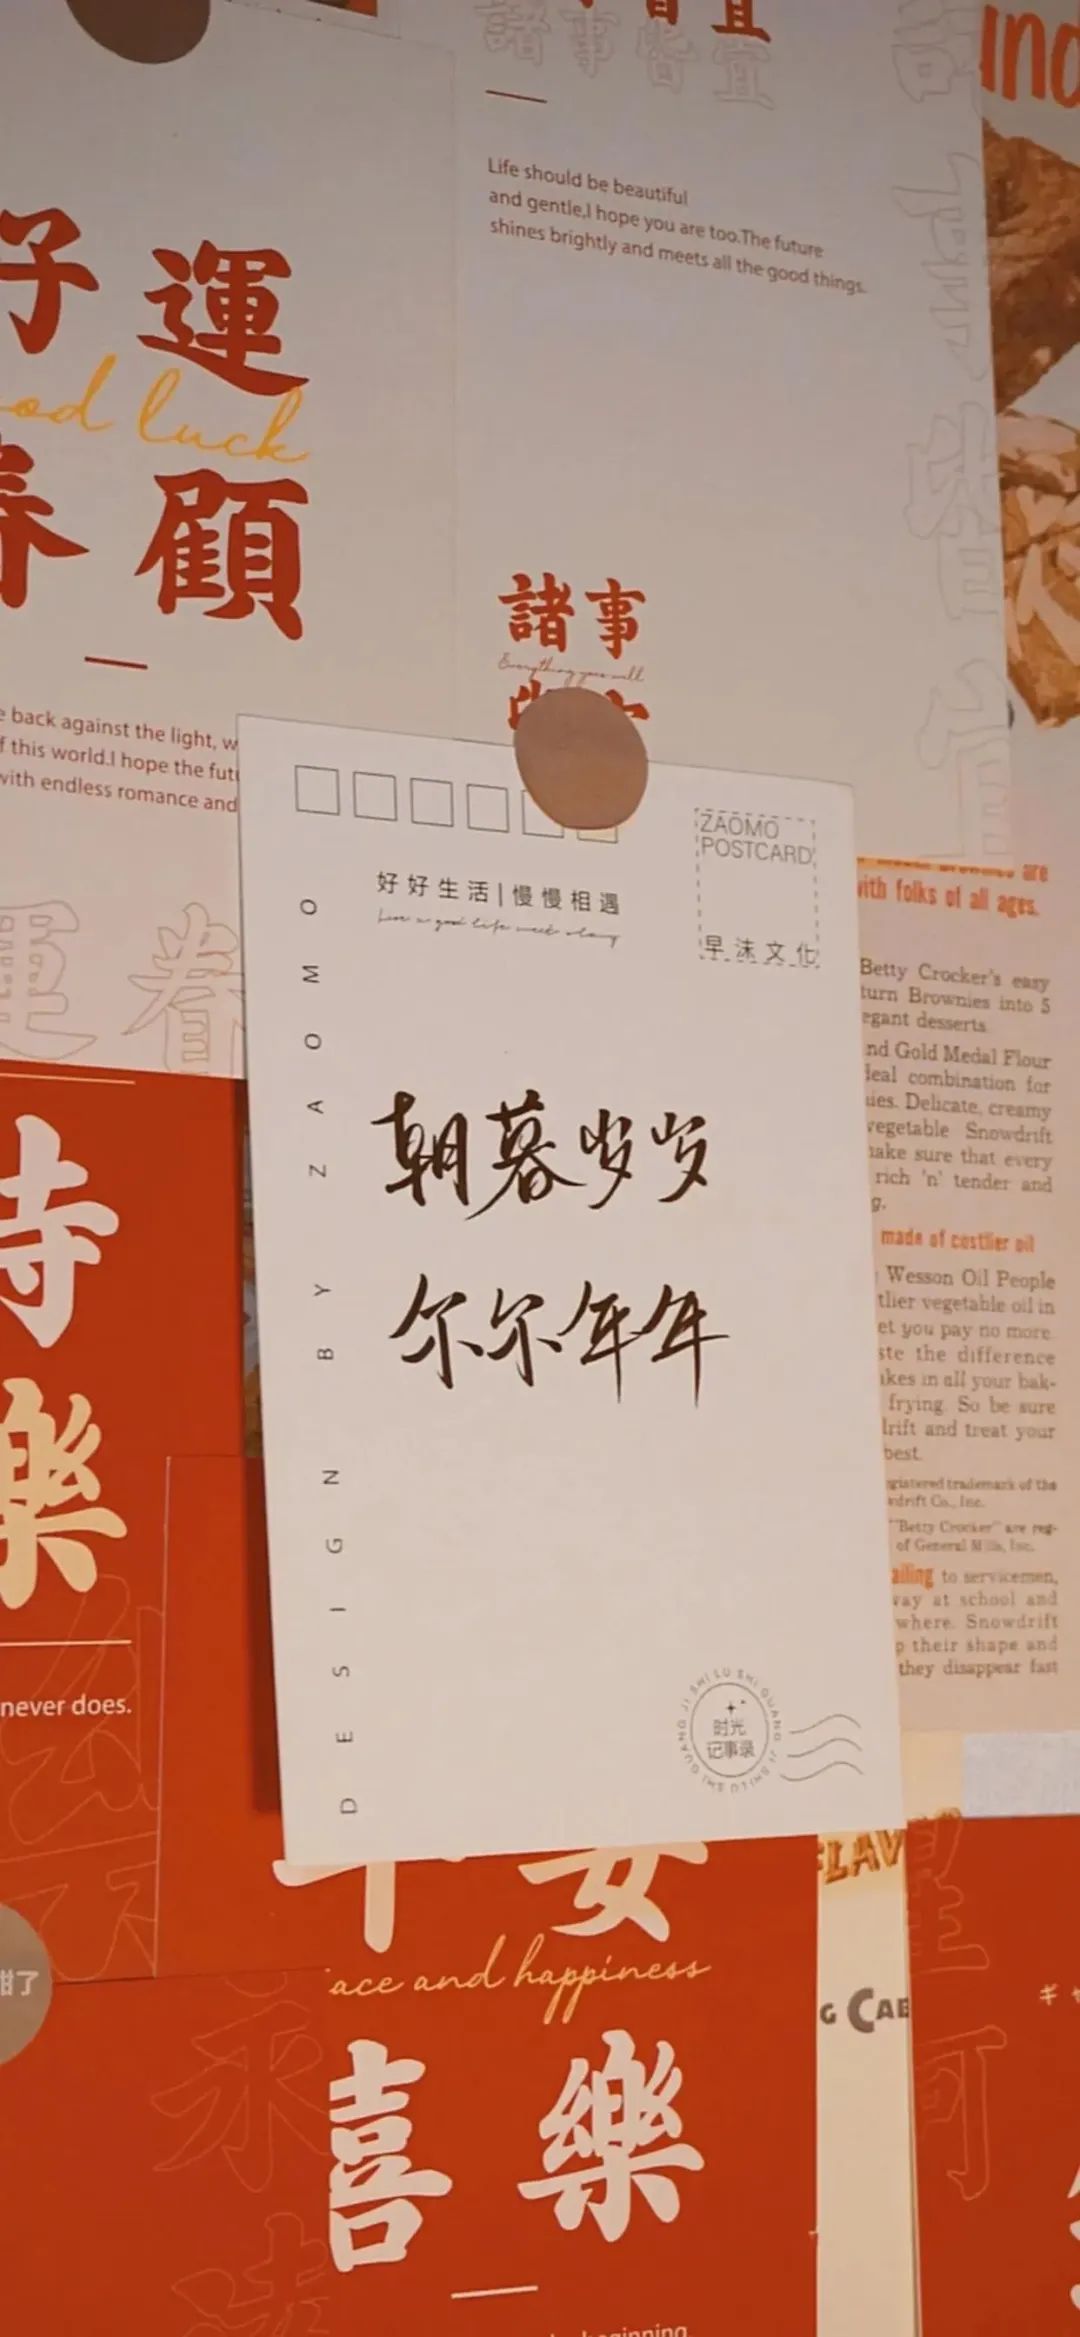 諸事皆宜
Life should be beautiful
and gentle,I hope you are too.The future
shines brightly and meets all the good things.
好運
good luck
眷顧
back against the light, w
f this world.I hope the futu
with endless romance and
諸事
ZAOMO
POSTCARD
早沫文化
好好生活|慢慢相遇
DESIGN BY ZAOMO
朝暮岁岁
尔尔年年
SHI GUANG JI SHI LU
时光
记事录
運眷
with folks of all ages.
Betty Crocker's easy
turn Brownies into 5
egant desserts
nd Gold Medal Flour
deal combination for
ies. Delicate, creamy
vegetable Snowdrift
make sure that every
rich 'n' tender and
g.
made of costlier oil
Wesson Oil People
tlier vegetable oil in
et you pay no more.
ste the difference
akes in all your bak-
frying. So be sure
drift and treat your
best.
egistered trademark of the
wdrift Co., Inc.
"Betty Crocker" are reg-
of General Mills, Inc.
ailing to servicemen,
way at school and
where. Snowdrift
p their shape and
they disappear fast
樂
never does.
ace and happiness
喜樂
beginning.
FLAV
G CAE
可
甜了